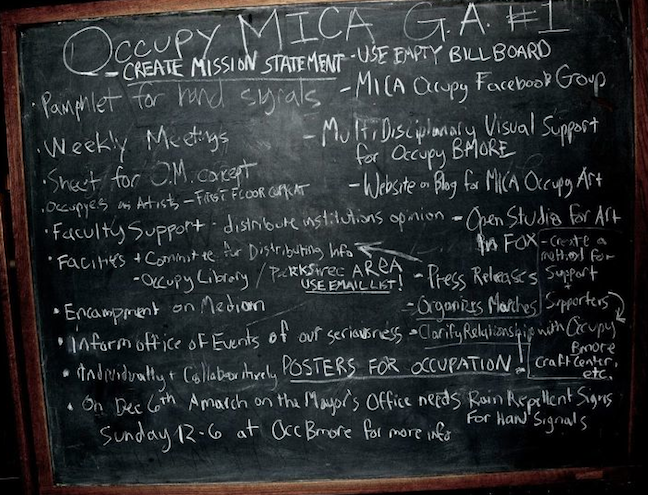 OCCUPY MICA G.A. #1
- CREATE MISSION STATEMENT
- USE EMPTY BILLBOARD
· Pamphlet for hand signals
- MICA Occupy Facebook Group
· Weekly Meetings
- MultiDisciplanary Visual Support
for Occupy BMORE
· Sheet for O.M. concept
- Website or Blog for MICA Occupy Art
· Occupyes as Artists - FIRST FLOOR
· Faculty Support - distribute institutions opinion
- Open Studio for Art
in FOX
· Facilities + Committee for Distributing Info
- Occupy Library / AREA
USE EMAIL LIST!
- Press Releases
- Create a
method for
Support
Supporters
· Encampment on Median
- Organizes Marches
· Inform office of Events of our seriousness
- Clarify Relationship with Occupy
Bmore
Craft Center,
etc.
· Individually + Collaboritively POSTERS FOR OCCUPATION
· On Dec 6th A march on the Mayor's Office needs Rain Repellent Signs
For Han Signals
Sunday 12-6 at Occ Bmore for more info